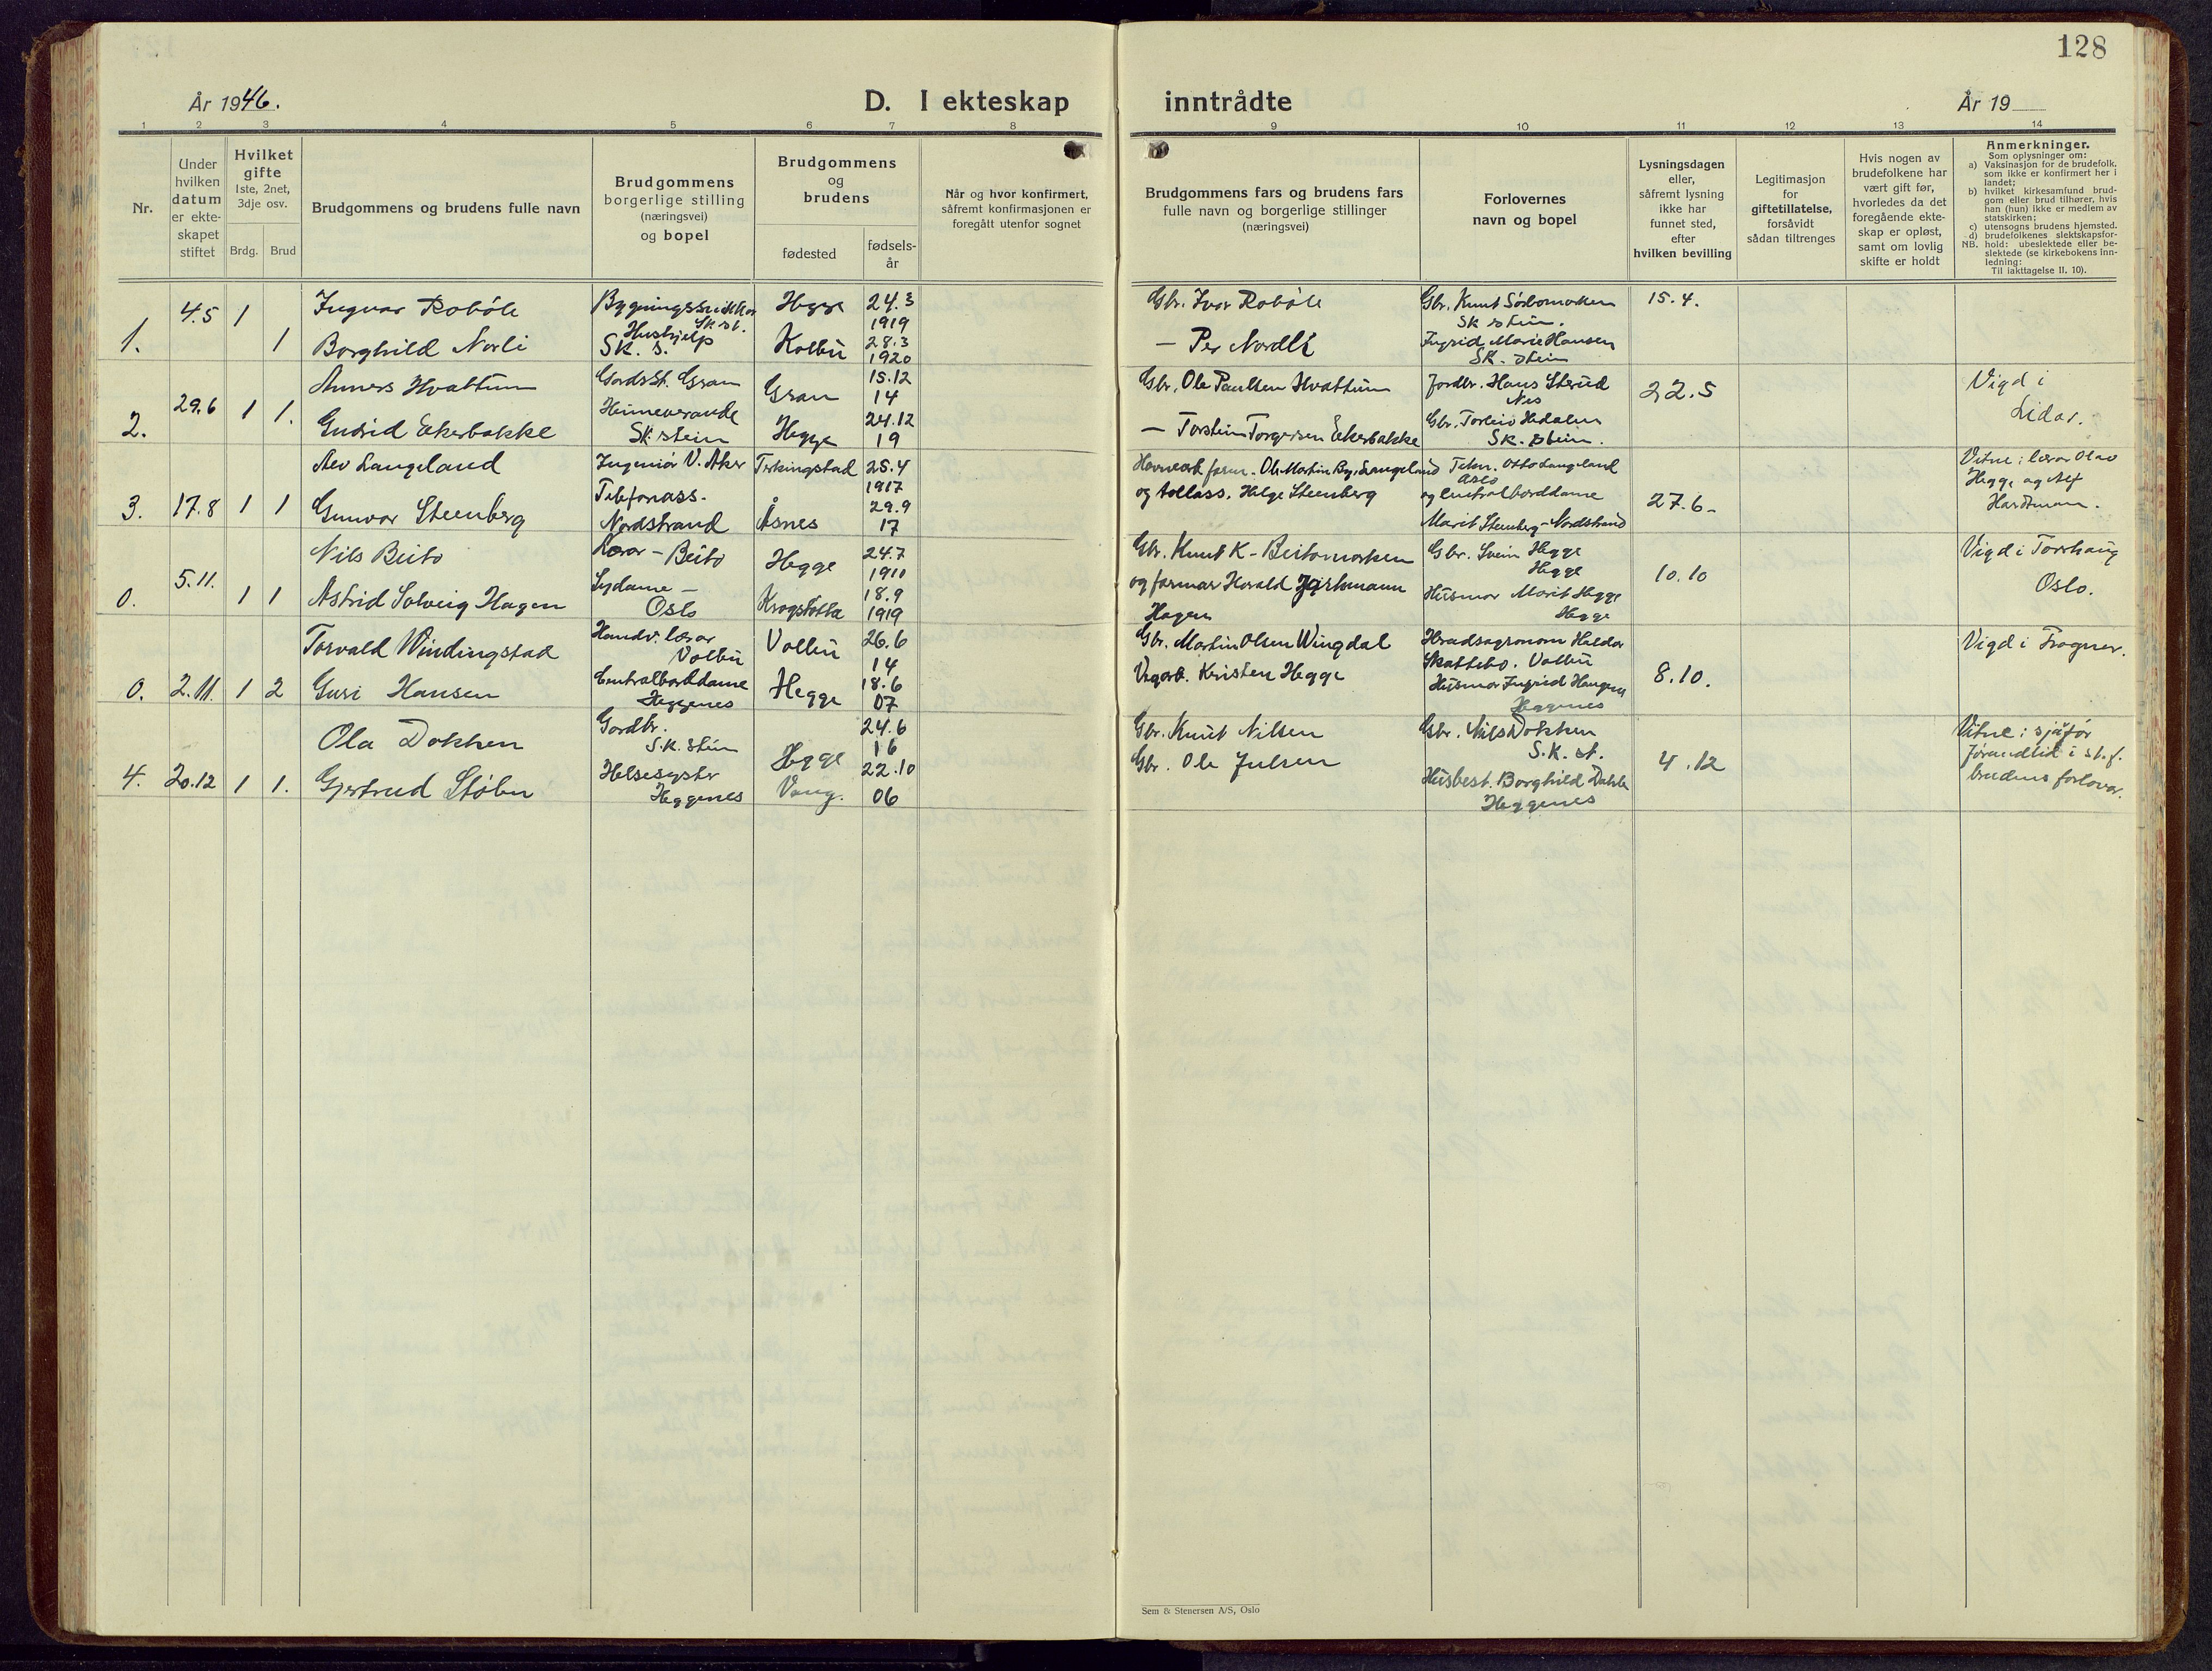 128
År 1946.
D. I ekteskap inntrådte
År 19
1 2 3 4 5 6 7 8 9 10 11 12 13 14
Nr.
Under hvilken datum er ekte-skapet stiftet
Hvilket gifte
1ste, 2net, 3dje osv.
Brdg. Brud
Brudgommens og brudens fulle navn
Brudgommens borgerlige stilling (næringsvei) og bopel
Brudgommens og brudens
fødested
fødsels-år
Når og hvor konfirmert, såfremt konfirmasjonen er foregått utenfor sognet
Brudgommens fars og brudens fars fulle navn og borgerlige stillinger (næringsvei)
Forlovernes navn og bopel
Lysningsdagen eller, såfremt lysning ikke har funnet sted, efter hvilken bevilling
Legitimasjon for giftetillatelse, forsåvidt sådan tiltrenges
Hvis nogen av brudefolkene har vært gift før, hvorledes da det foregående ekte-skap er opløst, samt om lovlig skifte er holdt
Anmerkninger.
Som oplysninger om:
a) Vaksinasjon for de brudefolk, som ikke er konfirmert her i landet;
b) hvilket kirkesamfund brud-gom eller brud tilhører, hvis han (hun) ikke er medlem av statskirken;
c) utensogns brudens hjemsted.
d) brudefolkenes slektskapsfor-hold: ubeslektede eller be-slektede (se kirkebokens inn-ledning:
NB. Til iakttagelse II. 10).
1. 4.5 1 Ingvar Robøle Bygningssnikkar Sk.st. Hegge 24.3 1919 Gbr. Ivar Robøle Gbr. Knut Sørbomoken Sk stein. 15.4.
1 Borghild Norli Hushjelp Sk. S. Kolbu 28.3 1920 — Per Nordli Ingrid Marie Hansen Sk. stein
2. 29.6 1 1. Anners Hvattum Gardsst. Gran Gran 15.12 14 Gbr. Ole Paulsen Hvattum Jordbr. Hans Sterud Nes 22.5 Vigd i Lidar.
Gudrid Ekerbakke Heimeverande Sk. stein Hegge 24.12 19 — Torstein Torgersen Ekerbakke Gbr. Torleiv Hedalen Sk. stein.
3. 17.8 1 1 Alv Langeland Ingeniør V. Aker 25.4 1917 Ole Martin Langeland Otto Langeland Oslo 27.6- Vitne: lærar Olav Hegge og Alf Hardtmann.
Gunvor Steenberg Telefonass. Nordstrand Åsnes 29.9 17 og tollass. Helge Steenberg og Centralborddame Marit Steenberg - Nordstrand
0. 5.11. 1 1 Nils Beito Lærar - Beito Hegge 24.7 1911 Gbr. Knut K- Beitomarken Gbr. Svein Hegge Hegge 10.10 Vigd i Torshaug Oslo.
Astrid Solveig Hagen Sydame - Oslo 18.9 1919 og farmar Harald Hagen Husmor Marit Hegge Hegge
0. 2.11. 1 2 Torvald Windingstad Handv. lærar Volbu Volbu 26.6 14 Gbr. Martin Olsen Wingdal Heradsagronom Haldor Skattebo. Volbu 8.10. Vigd i Frogner.
Guri Hansen Centralborddame Heggenes Hegge 18.6 07 Vegarb. Kristen Hegge Husmor Ingrid Haugen Heggenes
4. 20.12 1 1. Ola Dokken Gardbr. S.K. stein Hegge 24.6 16 Gbr. Knut Nilsen Gbr. Nils Dokken S.K. st. 4.12 Vitne: sjåfør Jørandlid i st. f. brudens forlovar.
Gjertrud Støbn Helsesyster Heggenes Vang. 22.10 06 Gbr. Ole Julsen Husbest. Borghild Dahle Heggenes
Sem & Stenersen A/S, Oslo